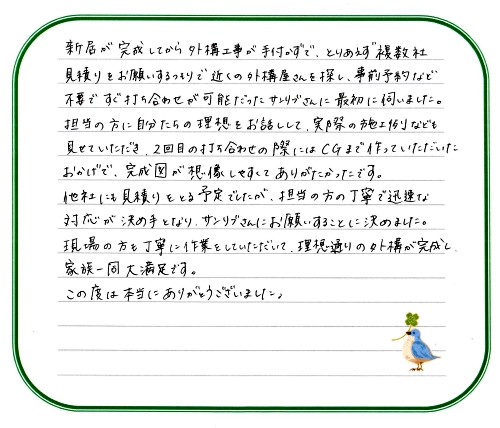 新居が完成してから外構工事が手付かずで、とりあえず複数社
見積りをお願いするつもりで近くの外構屋さんを探し、事前予約など
不要ですぐ打ち合わせが可能だったサンリブさんに最初に伺いました。
担当の方に自分たちの理想をお話しして、実際の施工例なども
見せていただき、2回目の打ち合わせの際にはCGまで作っていただいた
おかげで、完成図が想像しやすくてありがたかったです。
他社にも見積りをとる予定でしたが、担当の方の丁寧で迅速な
対応が決め手となり、サンリブさんにお願いすることに決めました。
現場の方も丁寧に作業をしていただいて、理想通りの外構が完成し、
家族一同大満足です。
この度は本当にありがとうございました。